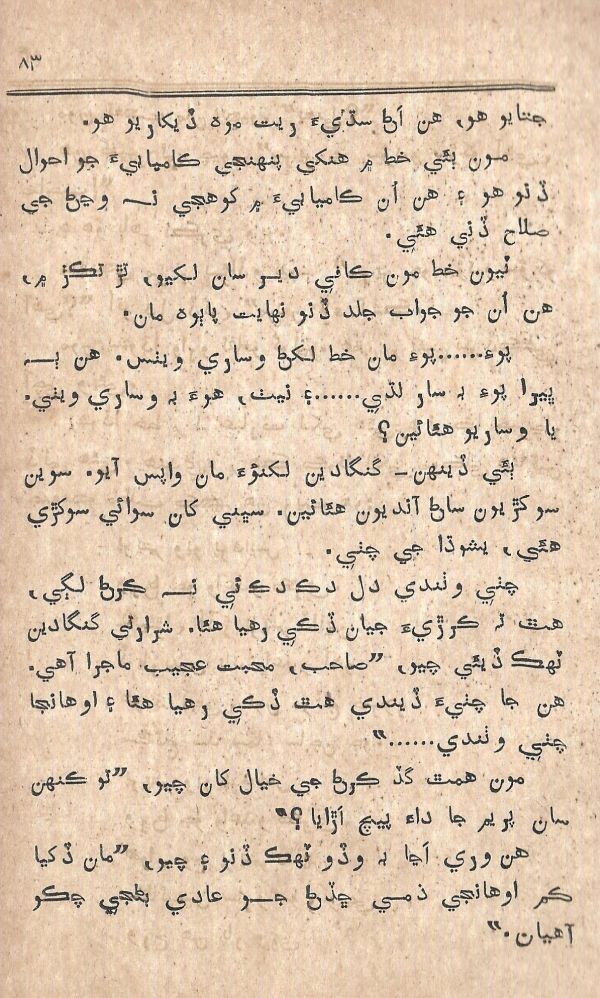 ۸۳
جتايو هو، هن اَڻ سڌيءَ ريت موه ڏيکاريو هو.
مون ٻئي خط ۾ هنکي پنهنجي ڪاميابيءَ جو احوال
ڏنو هو ۽ هن اُن ڪاميابيءَ ۾ کوهجي نہ وڃڻ جي
صلاح ڏني هئي.
ٽيون خط مون ڪافي دير سان لکيو، تڙ تڪڙ ۾،
هن اُن جو جواب جلد ڏنو نهايت پاٻوه مان.
پوءِ......پوءِ مان خط لکڻ وساري ويٺس. هن ٻہ
ڀيرا پوءِ بہ سار لڌي......۽ نيٺ، هوءَ بہ وساري ويٺي.
يا وساريو هئائين؟
ٻئي ڏينهن— گنگادين لکنؤ مان واپس آيو. سوين
سوکڙيون ساڻ آنديون هئائين. سڀني کان سوائي سوکڙي
هئي، يشوڌا جي چٺي.
چٺي وٺندي دل دڪ دڪ ئي نہ ڪرڻ لڳي،
هٿ تہ ڪرڙيءَ جيان ڏڪي رهيا هئا. شرارتي گنگادين
ٽهڪ ڏيئي چيو، ”صاحب، محبت عجيب ماجرا آهي.
هن جا چٺيءَ ڏيندي هٿ ڏڪي رهيا هئا ۽ اوهانجا
چٺي وٺندي......“
مون همٿ گڏ ڪرڻ جي خيال کان چيو، ”تو ڪنهن
سان پريم جا داءَ پيچ اَڙايا؟“
هن وري اَڃا بہ وڏو ٽهڪ ڏنو ۽ چيو، ”مان ڏکيا
ڪم اوهانجي ذمي ڇڏڻ جو عادي بڻجي چڪو
آهيان.“